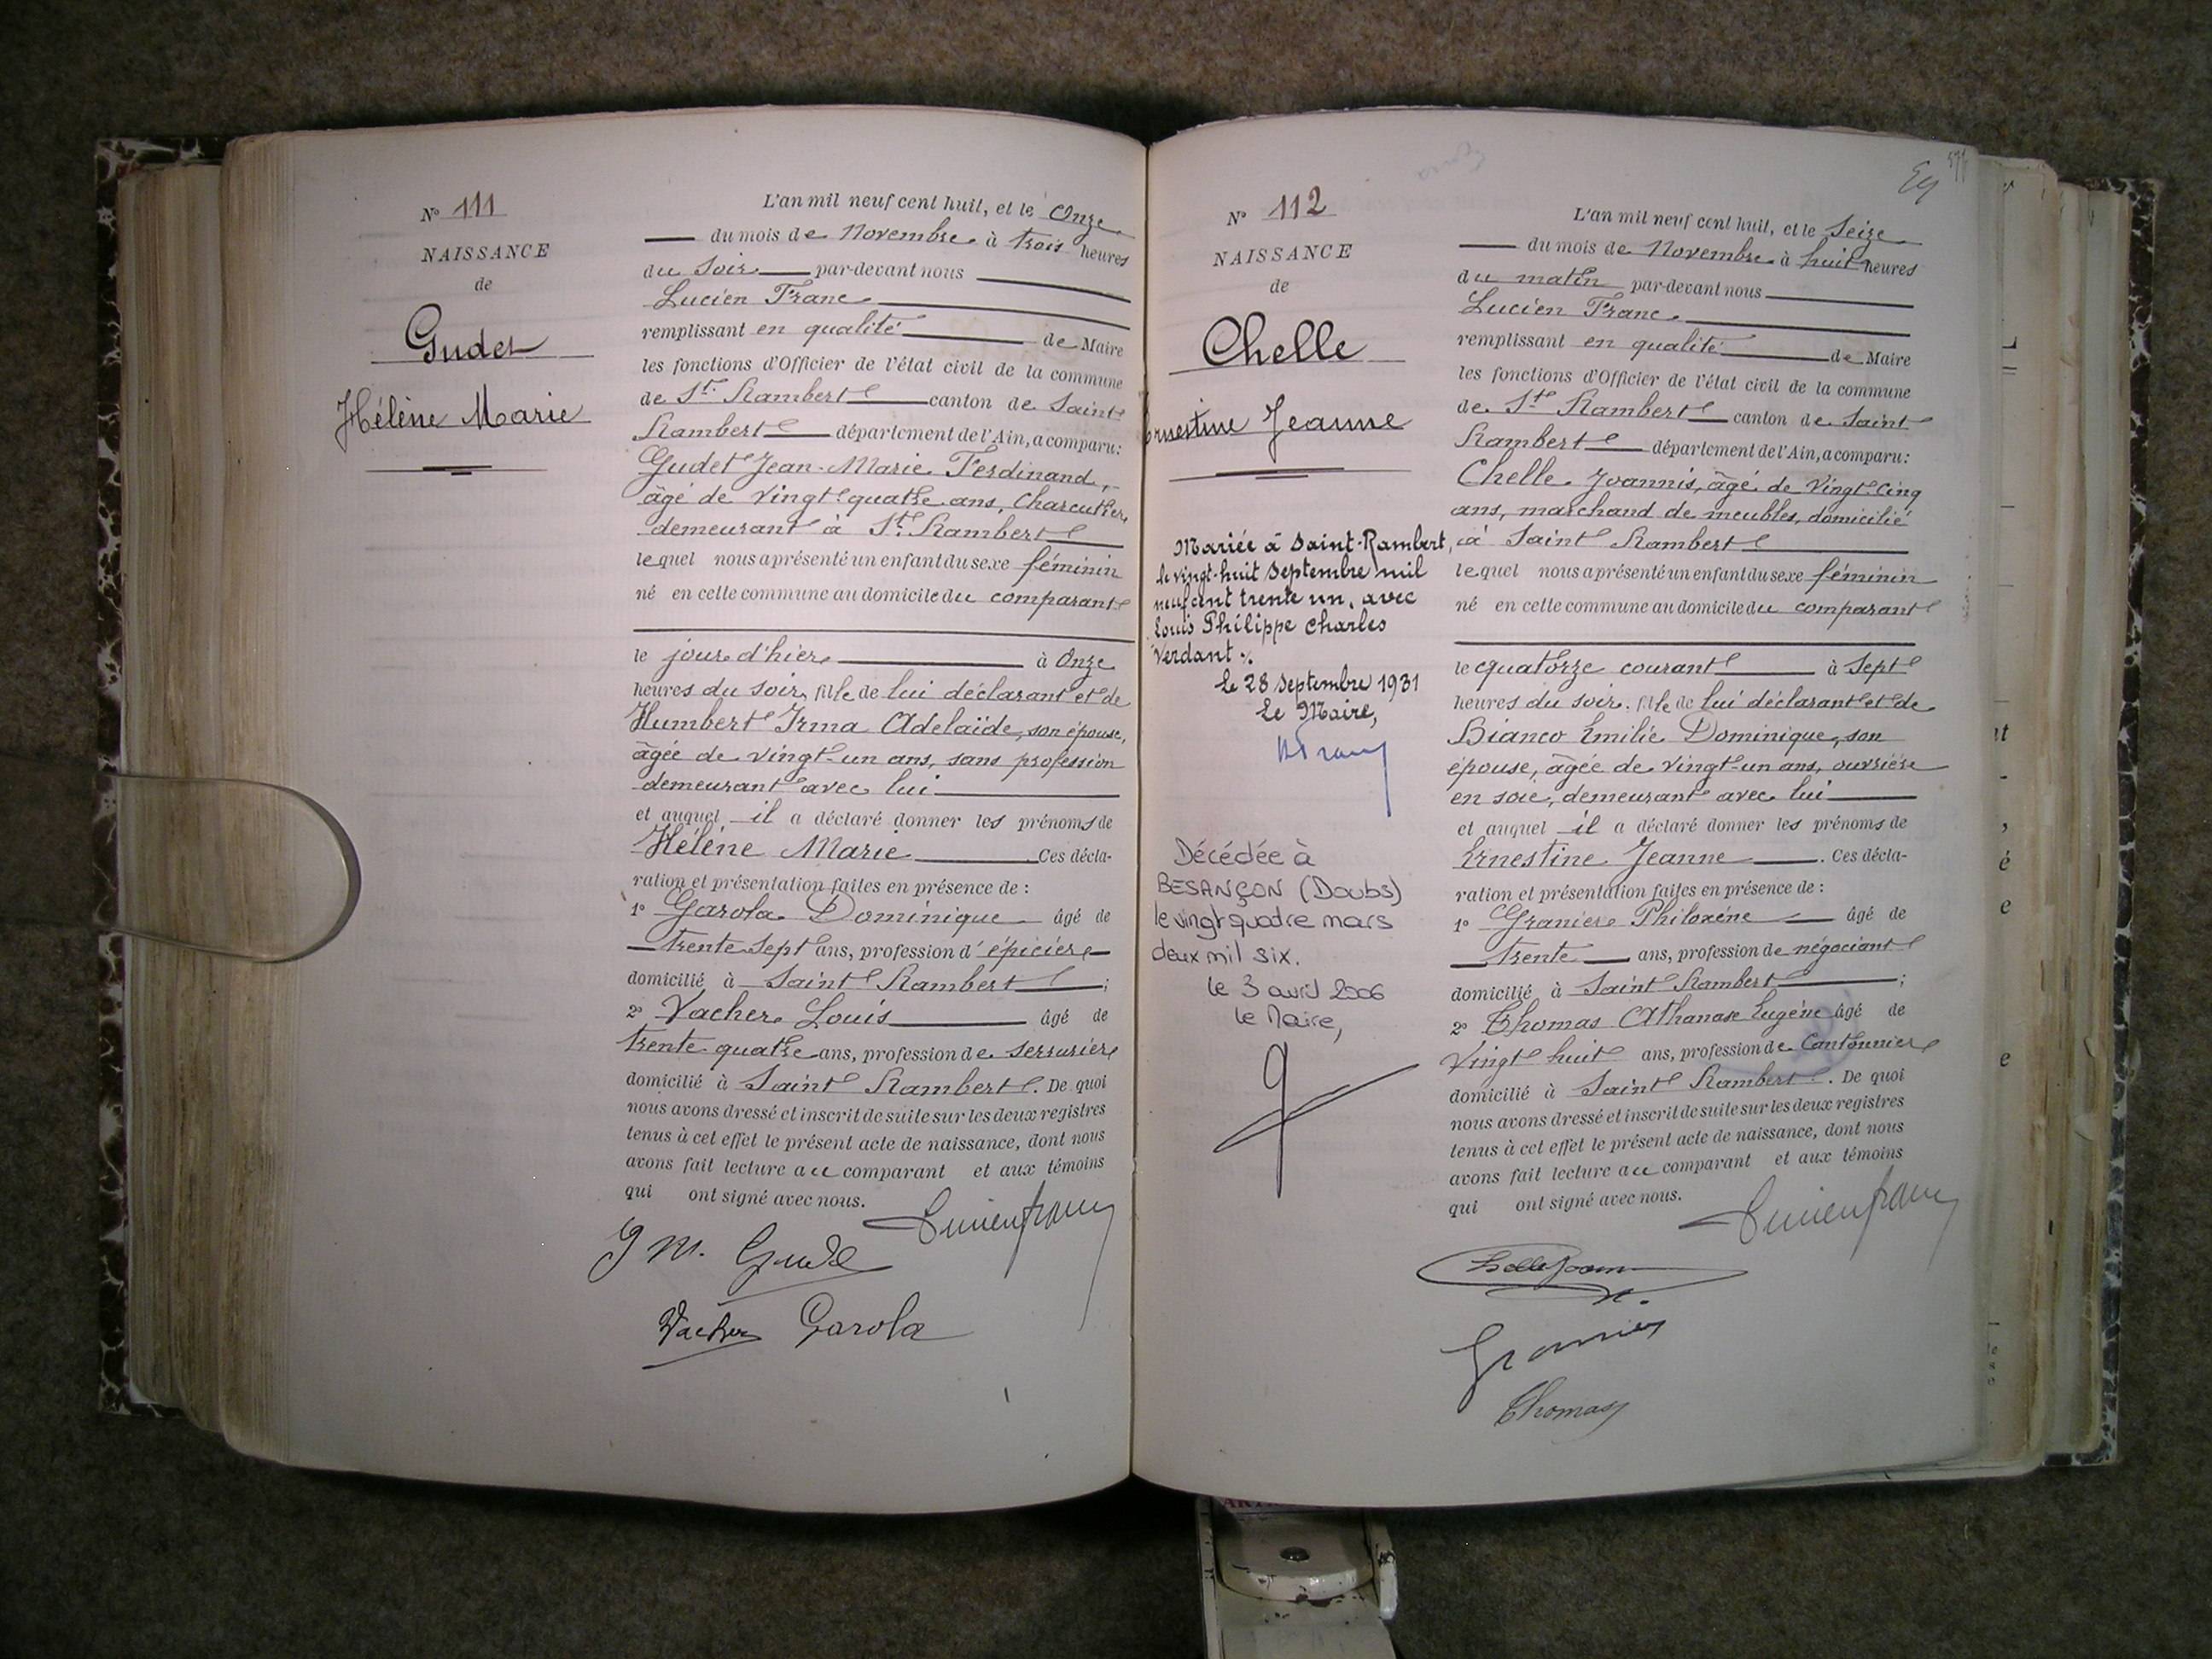 N° 111
NAISSANCE
de
Gudet
Hélène Marie
L'an mil neuf cent huit, et le Onze
du mois de Novembre à trois heures
du Soir par-devant nous
Lucien Franc
remplissant en qualité de Maire
les fonctions d'Officier de l'état civil de la commune
de St. Rambert canton de Saint
Rambert département de l'Ain, a comparu:
Gudet Jean-Marie Ferdinand,
âgé de vingt-quatre ans, Charcutier
demeurant à St. Rambert
lequel nous a présenté un enfant du sexe féminin
né en cette commune au domicile du comparant
le jour d'hier à Onze
heures du soir, fille de lui déclarant et de
Humbert Irma Adelaïde, son épouse,
âgée de vingt-un ans, sans profession
demeurant avec lui
et auquel il a déclaré donner les prénoms de
Hélène Marie Ces décla-
ration et présentation faites en présence de :
1° Garola Dominique âgé de
trente sept ans, profession d'épicier
domicilié à Saint Rambert ;
2° Vacher Louis âgé de
trente quatre ans, profession de serrurier
domicilié à Saint Rambert. De quoi
nous avons dressé et inscrit de suite sur les deux registres
tenus à cet effet le présent acte de naissance, dont nous
avons fait lecture au comparant et aux témoins
qui ont signé avec nous.
Lucien Franc
J M. Gudet
Vacher Garola
N° 112
NAISSANCE
de
Chelle
Ernestine Jeanne
Mariée à Saint-Rambert,
le vingt-huit septembre mil
neuf cent trente un, avec
Louis Philippe Charles
Verdant.
Le 28 septembre 1931
Le Maire,
Décédée à
BESANÇON (Doubs)
le vingt quatre mars
deux mil six.
le 3 avril 2006
le Maire,
L'an mil neuf cent huit, et le Seize
du mois de Novembre à huit heures
du matin par-devant nous
Lucien Franc
remplissant en qualité de Maire
les fonctions d'Officier de l'état civil de la commune
de St. Rambert canton de Saint
Rambert département de l'Ain, a comparu:
Chelle Joannis, âgé de Vingt-cinq
ans, marchand de meubles, domicilié
à Saint Rambert
lequel nous a présenté un enfant du sexe féminin
né en cette commune au domicile du comparant
le quatorze courant à Sept
heures du soir, fille de lui déclarant et de
Bianco Emilie Dominique, son
épouse, âgée de vingt-un ans, ouvrière
en soie, demeurant avec lui
et auquel il a déclaré donner les prénoms de
Ernestine Jeanne. Ces décla-
ration et présentation faites en présence de :
1° Granier Philoxène âgé de
trente ans, profession de négociant
domicilié à Saint Rambert ;
2° Thomas Athanase Eugène âgé de
Vingt huit ans, profession de Cantonnier
domicilié à Saint Rambert. De quoi
nous avons dressé et inscrit de suite sur les deux registres
tenus à cet effet le présent acte de naissance, dont nous
avons fait lecture au comparant et aux témoins
qui ont signé avec nous.
Lucien Franc
Granier
Thomas